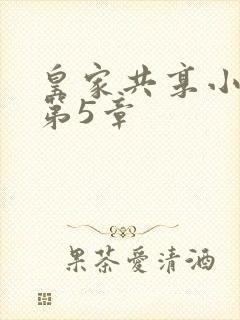 皇家共享小
第5章
果茶愛清酒